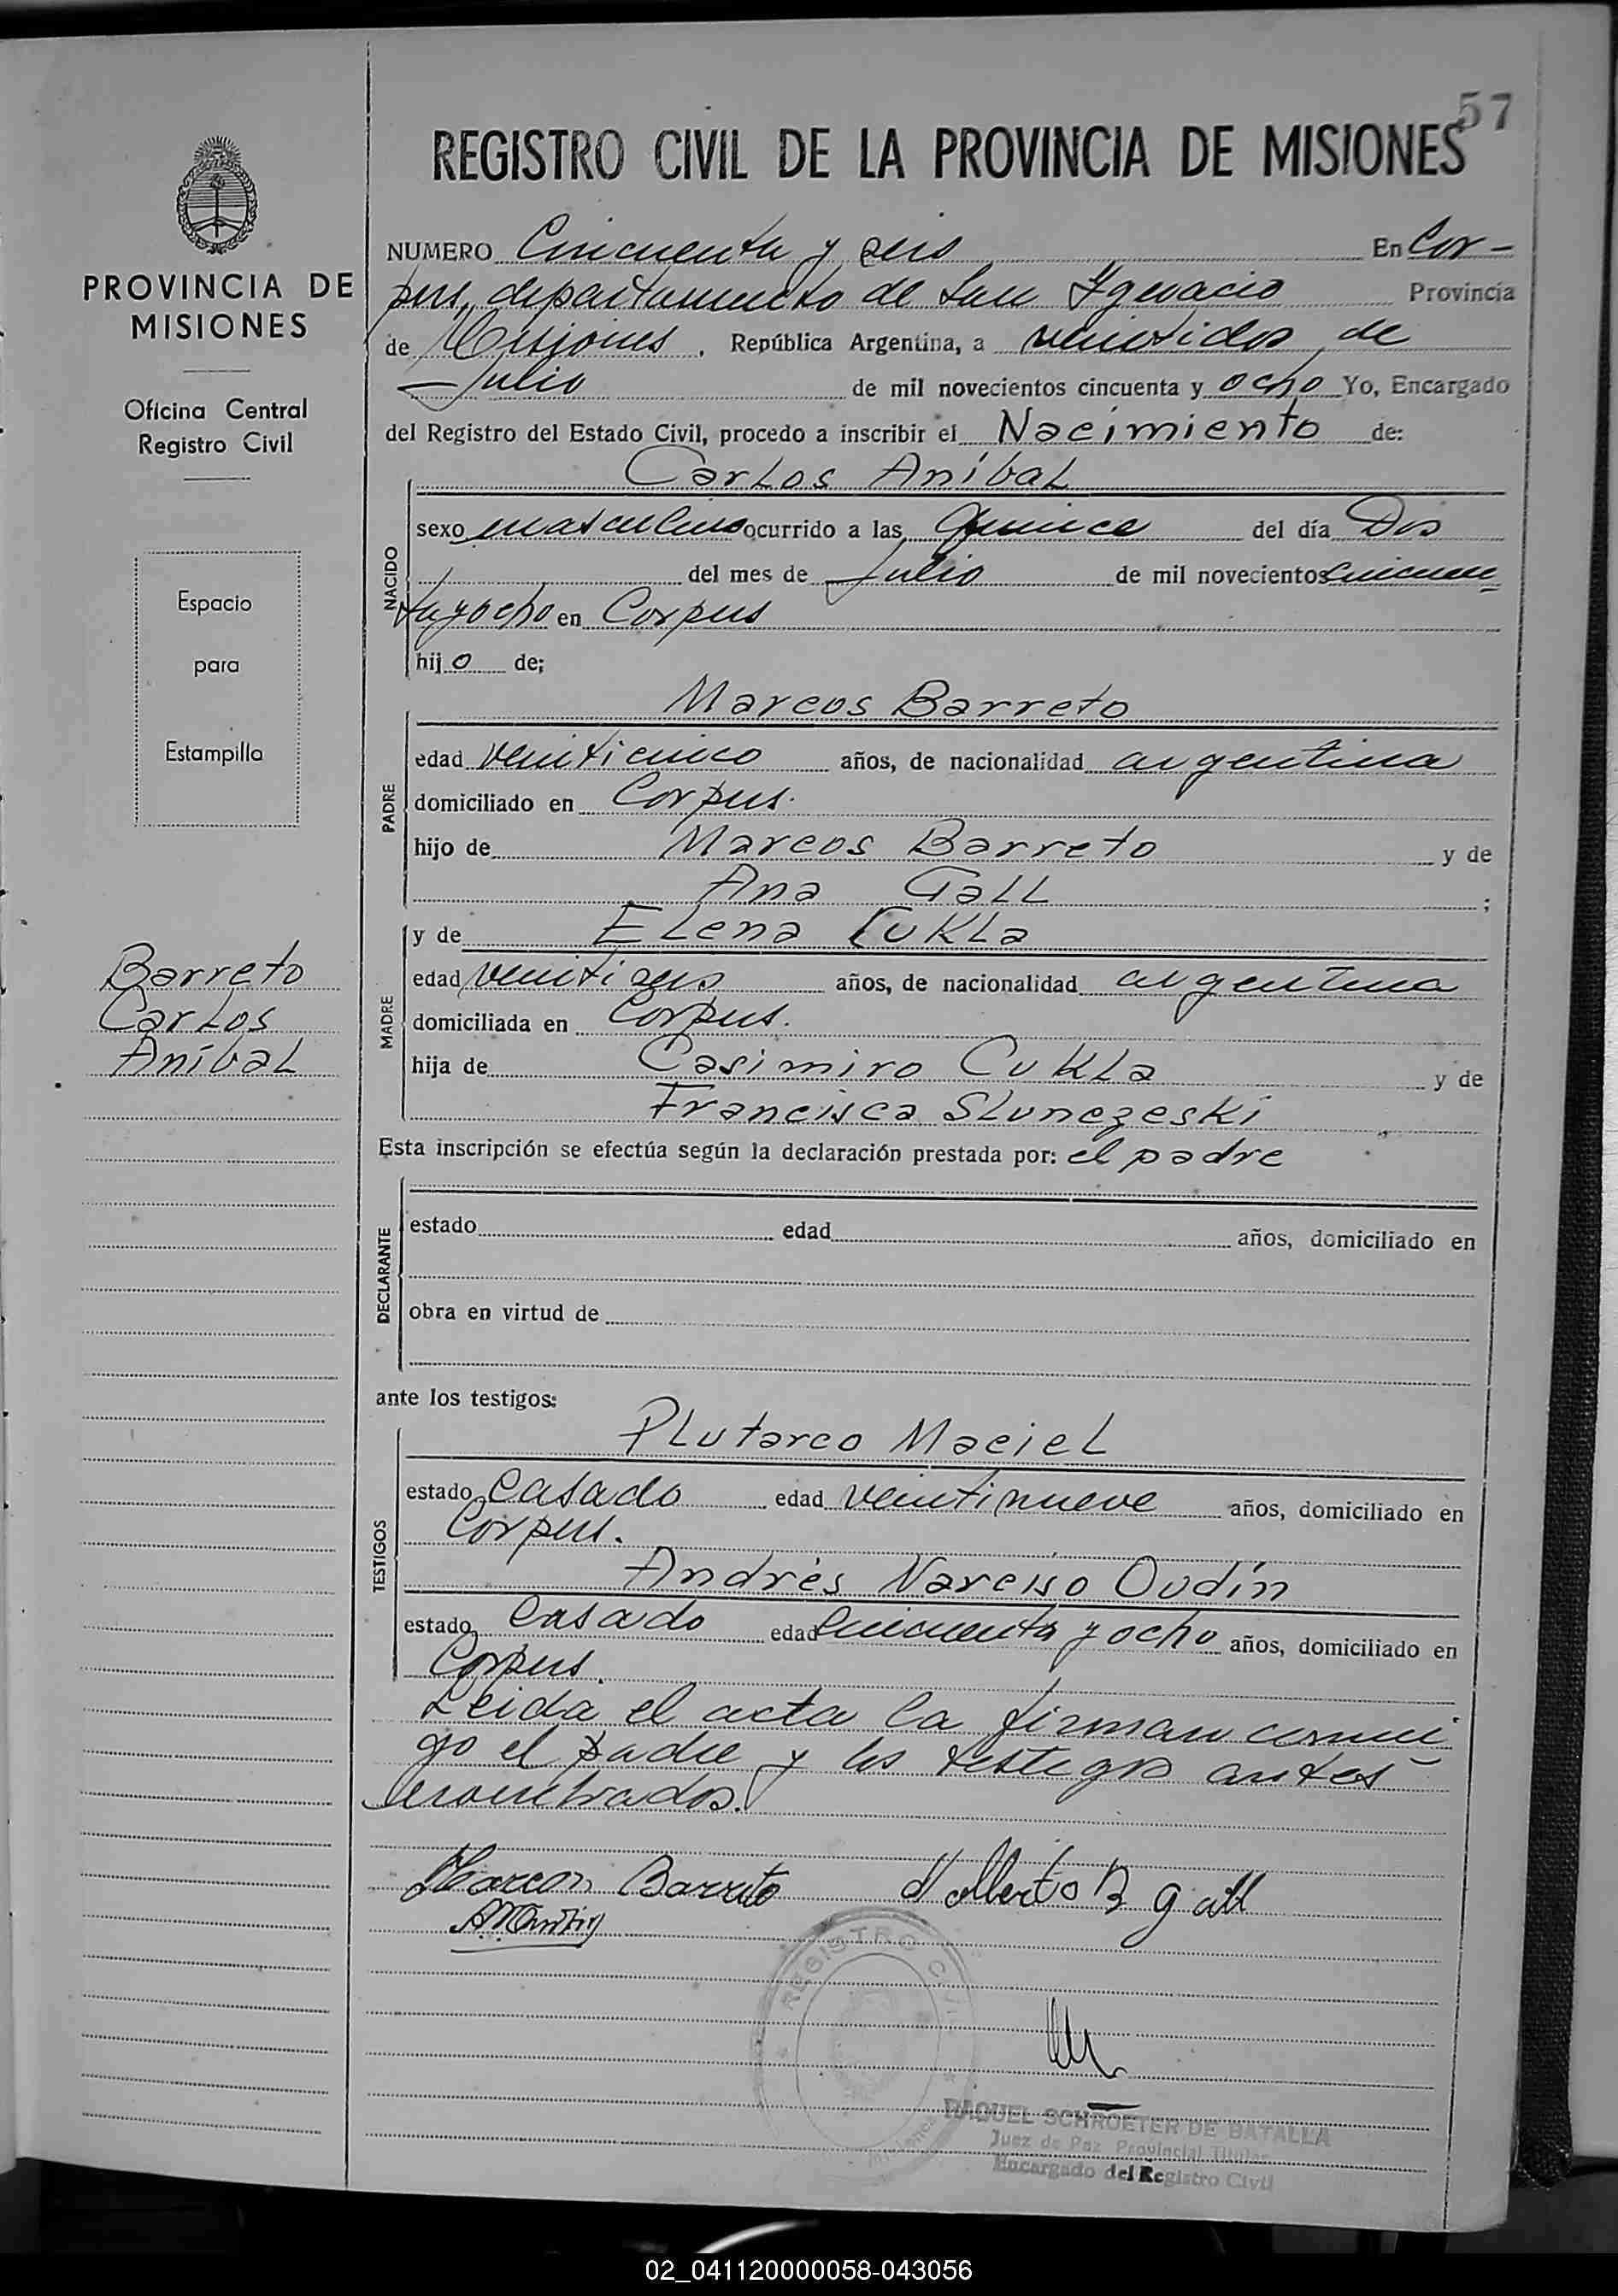 57
REGISTRO CIVIL DE LA PROVINCIA DE MISIONES
PROVINCIA DE
MISIONES
Oficina Central
Registro Civil
Espacio
para
Estampilla
Barreto
Carlos
Aníbal
NUMERO Cincuenta y seis En Cor-
pus, departamento de San Ygnacio Provincia
de Misiones, República Argentina, a veintidos de
Julio de mil novecientos cincuenta y ocho Yo, Encargado
del Registro del Estado Civil, procedo a inscribir el Nacimiento de:
Carlos Aníbal
NACIDO
sexo masculino ocurrido a las quince del día Dos
del mes de Julio de mil novecientos cincuen-
ta y ocho en Corpus
hijo de;
Marcos Barreto
PADRE
edad veinticinco años, de nacionalidad argentina
domiciliado en Corpus.
hijo de Marcos Barreto y de
Ana Gall ;
y de Elena Cukla
MADRE
edad veintiseis años, de nacionalidad argentina
domiciliada en Corpus.
hija de Casimiro Cukla y de
Francisca Slunczeski
Esta inscripción se efectúa según la declaración prestada por: el padre
DECLARANTE
estado edad años, domiciliado en
obra en virtud de
ante los testigos:
Plutarco Maciel
TESTIGOS
estado Casado edad veintinueve años, domiciliado en
Corpus.
Andrés Narciso Oudín
estado Casado edad cincuenta y ocho años, domiciliado en
Corpus.
Leida el acta la firman conmi-
go el padre y los testigos antes
nombrados.
Marcos Barreto
Alberto B Gall
REGISTRO CIVIL
RAQUEL SCHROETER DE BATALLA
Juez de Paz Provincial Titular
Encargado del Registro Civil
02_041120000058-043056